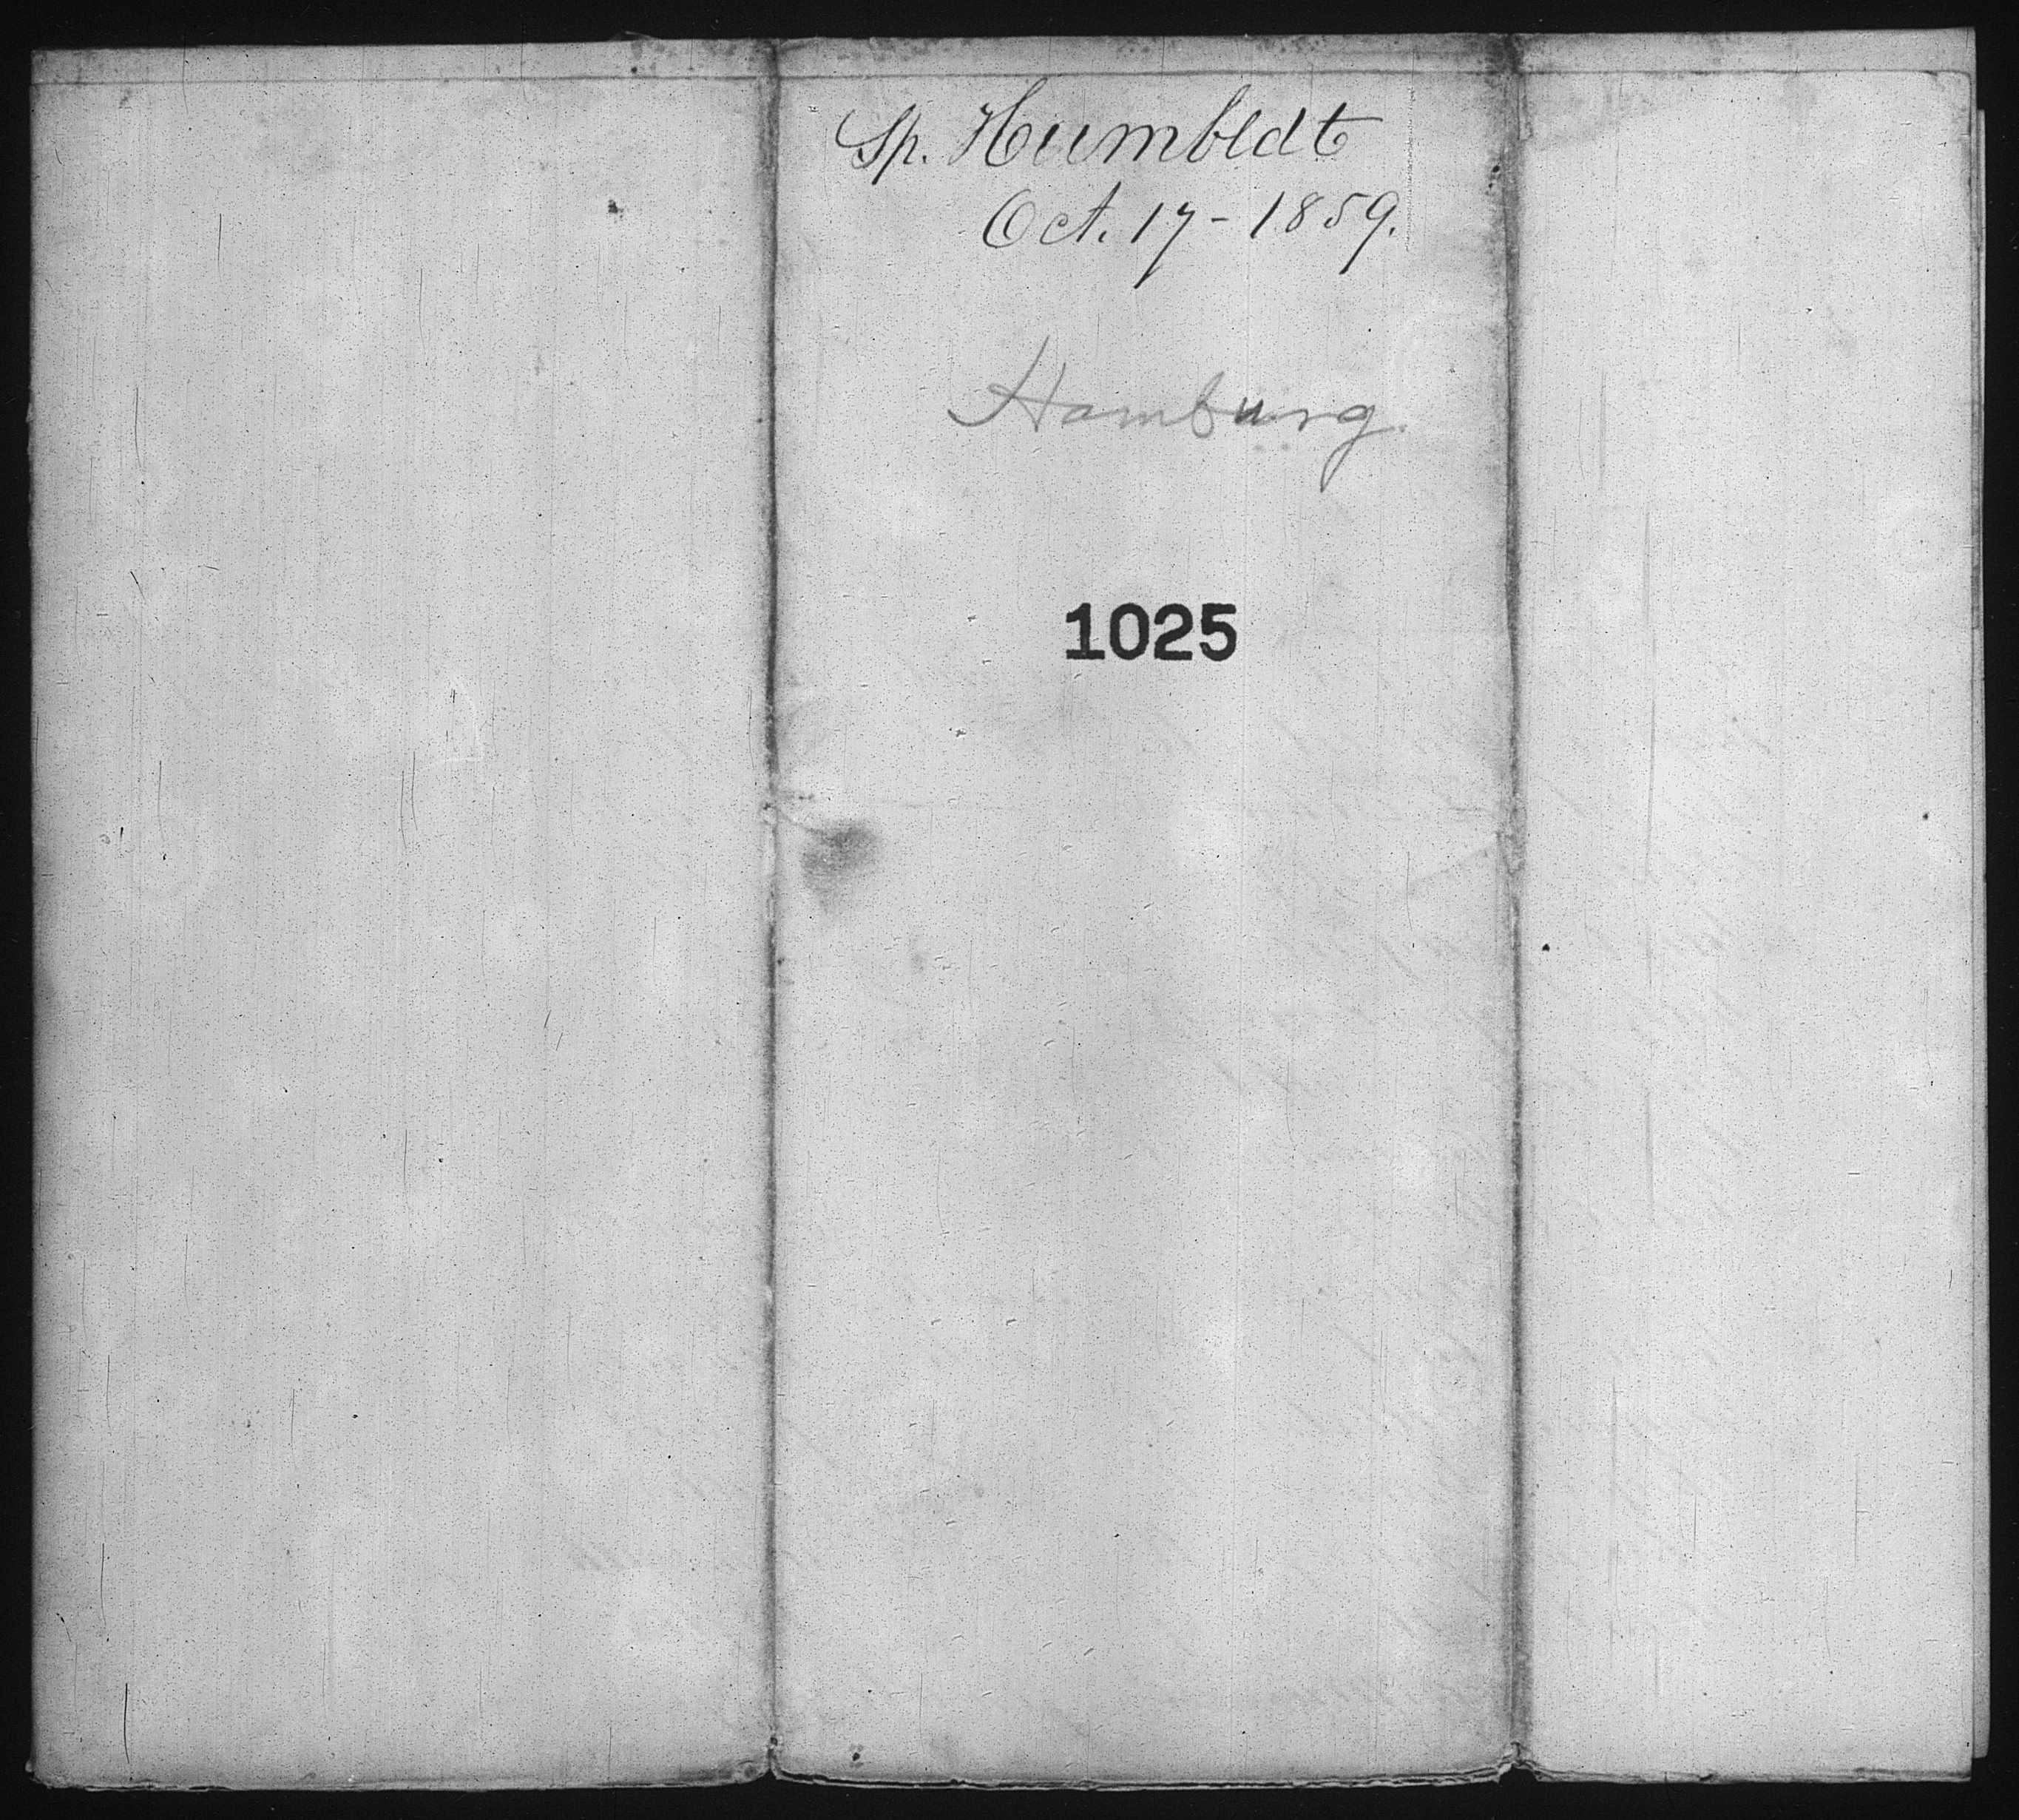 Sp. Humbldt
Oct. 17 - 1859.
Hamburg.
1025